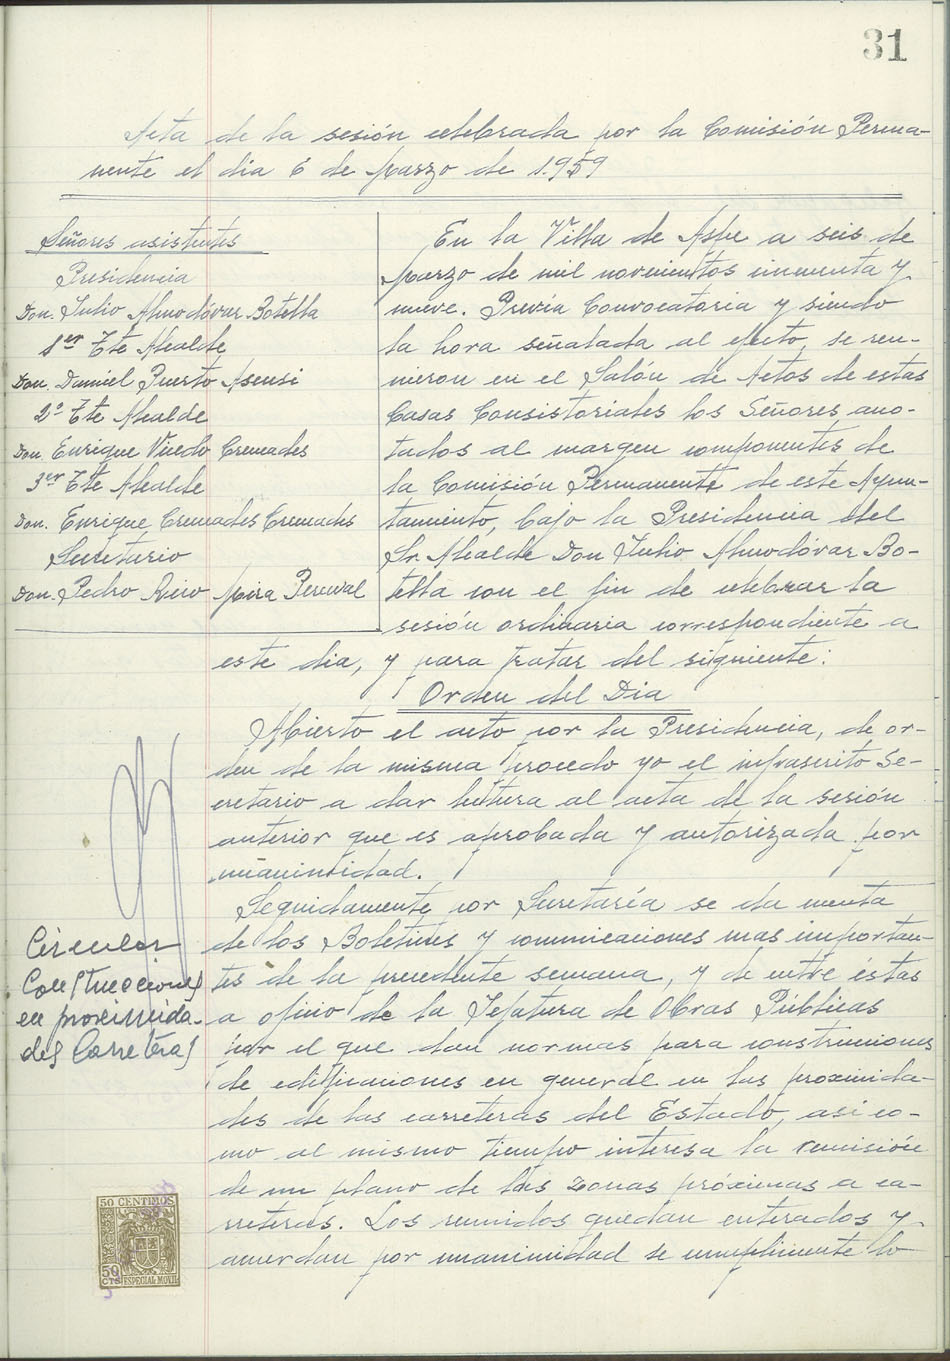 31
Acta de la sesión celebrada por la Comisión Perma-
nente el dia 6 de Marzo de 1.959
Señores asistentes
Presidencia
Don. Julio Almodóvar Botella
1er Tte Alcalde
Don. Daniel Puerto Asensi
2º Tte Alcalde
Don. Enrique Vicedo Cremades
3er Tte Alcalde
Don. Enrique Cremades Cremades
Secretario
Don. Pedro Mira Perceval
En la Villa de Aspe a seis de
Marzo de mil novecientos cincuenta y
nueve. Previa Convocatoria y siendo
la hora señalada al efecto, se reu-
nieron en el Salón de Actos de estas
Casas Consistoriales los Señores ano-
tados al margen componentes de
la Comisión Permanente de este Ayun-
tamiento, bajo la Presidencia del
Sr. Alcalde Don Julio Almodóvar Bo-
tella con el fin de celebrar la
sesión ordinaria correspondiente a
este dia, y para tratar del siguiente:
Orden del Dia
Abierto el acto por la Presidencia, de or-
den de la misma procedo yo el infrascrito Se-
cretario a dar lectura al acta de la sesión
anterior que es aprobada y autorizada por
unanimidad.
Seguidamente por Secretaría se da cuenta
de los Boletines y comunicaciones mas importan-
tes de la precedente semana, y de entre éstas
a oficio de la Jefatura de Obras Públicas
por el que dan normas para construcciones
de edificaciones en general en las proximida-
des de las carreteras del Estado, asi co-
mo al mismo tiempo interesa la remisión
de un plano de las zonas próximas a ca-
rreteras. Los reunidos quedan enterados y
acuerdan por unanimidad se cumplimente lo
Circular
Construcciones
en proximida-
des Carreteras
50 CENTIMOS
50
CTS
ESPECIAL MOVIL